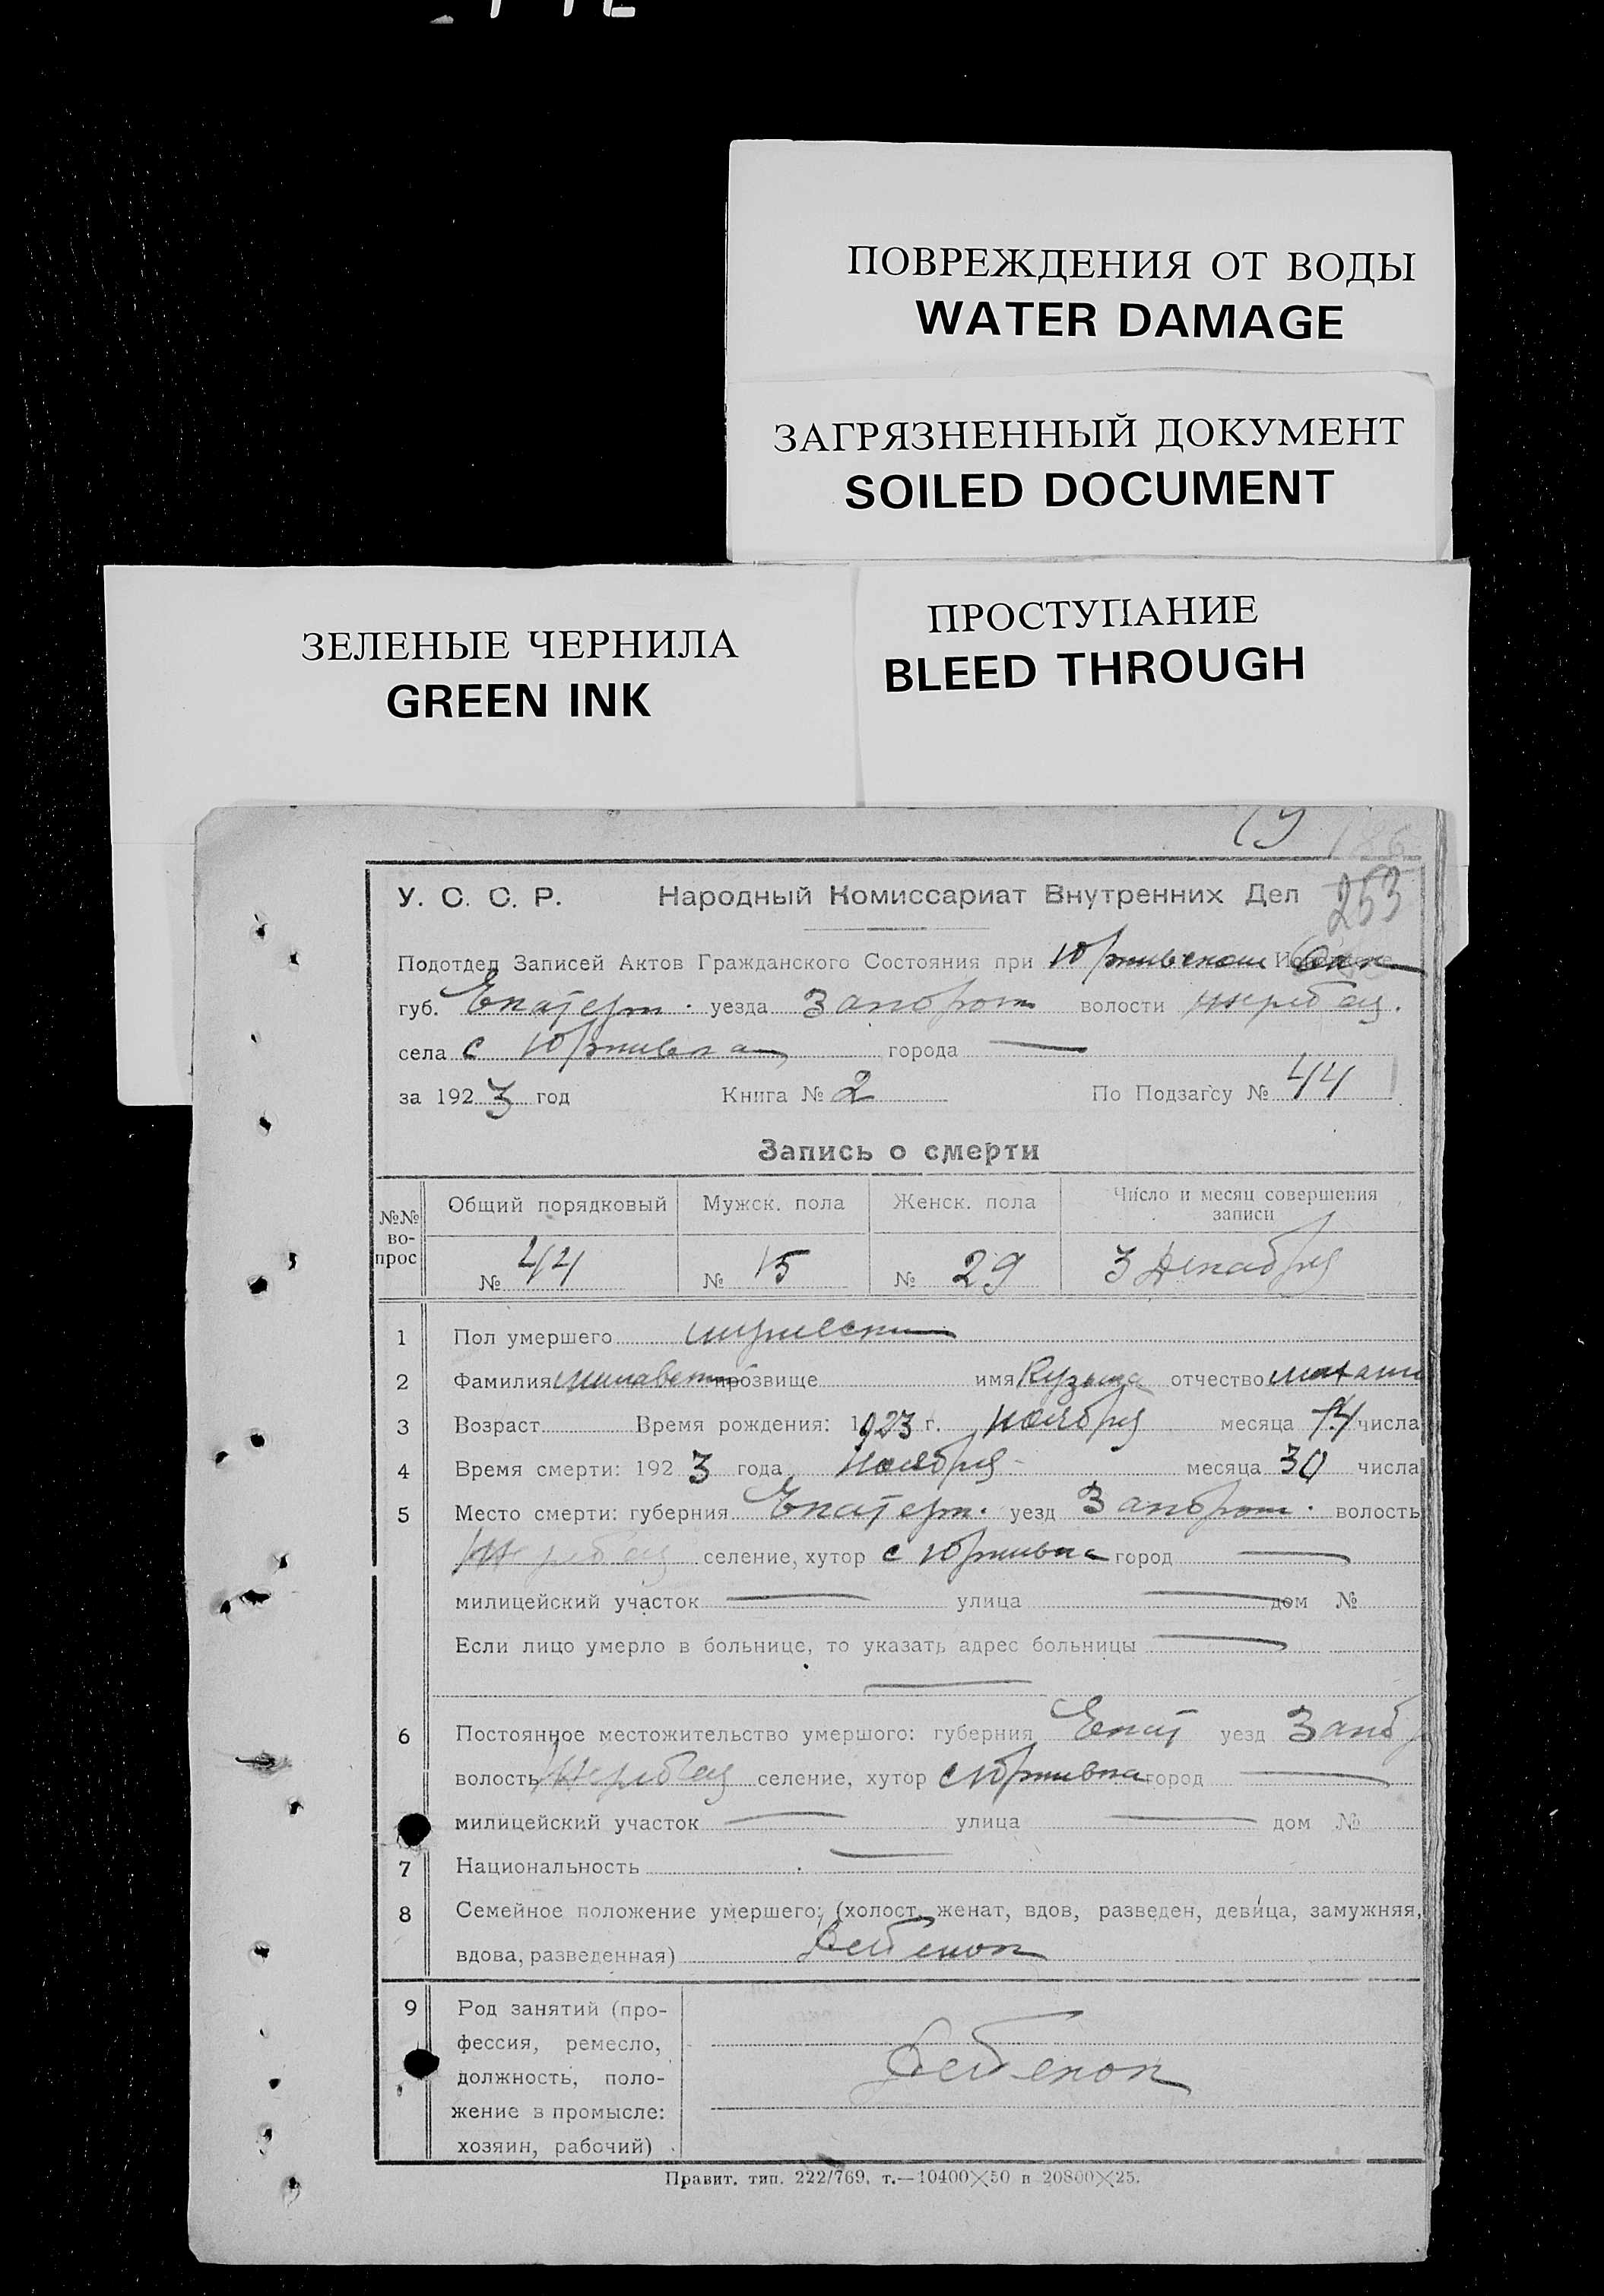 ПОВРЕЖДЕНИЯ ОТ ВОДЫ
WATER DAMAGE
ЗАГРЯЗНЕННЫЙ ДОКУМЕНТ
SOILED DOCUMENT
ЗЕЛЕНЫЕ ЧЕРНИЛА
GREEN INK
ПРОСТУПАНИЕ
BLEED THROUGH
253
У. С. С. Р. Народный Комиссариат Внутренних Дел
Подотдел Записей Актов Гражданского Состояния при
губ. Екатерн. уезда Запорож волости Жеребец.
села с города —
за 1923 год Книга № 2 По Подзагсу № 44
Запись о смерти
№№ во-прос Общий порядковый Мужск. пола Женск. пола Число и месяц совершения записи
№ 44 № 15 № 29 3 Декабря
1 Пол умершего мужеский
2 Фамилия прозвище имя Кузьма отчество
3 Возраст Время рождения: 1923 г. Ноября месяца 14 числа
4 Время смерти: 1923 года Ноября месяца 30 числа
5 Место смерти: губерния Екатерн. уезд Запорож. волость
Жеребец селение, хутор с город —
милицейский участок — улица — дом №
Если лицо умерло в больнице, то указать адрес больницы —
—
6 Постоянное местожительство умершего: губерния Екат уезд Запор
волость Жеребец селение, хутор с город —
милицейский участок — улица — дом №
7 Национальность —
8 Семейное положение умершего; (холост, женат, вдов, разведен, девица, замужняя,
вдова, разведенная) Ребенок
9 Род занятий (про-
фессия, ремесло,
должность, поло- Ребенок
жение в промысле:
хозяин, рабочий)
Правит. тип. 222/769. т.—10400×50 и 20800×25.